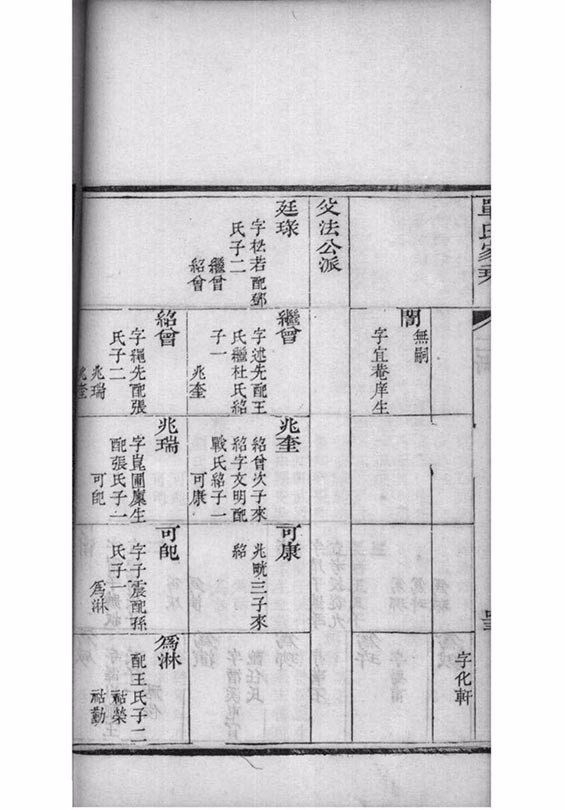 單氏家乘
字化軒
無嗣
誾
字宜菴庠生
父法公派
廷琭
字松若配鄧
氏子二
繼曾
紹曾
繼曾
字述先配王
氏繼杜氏紹
子一
兆奎
兆奎
紹曾次子來
紹字文明配
戰氏紹子一
可康
可康
兆晄三子來
紹
紹曾
字繩先配張
氏子二
兆瑞
兆奎
兆瑞
字崑圃廩生
配張氏子一
可𬀩
字子震配孫
氏子一
爲淋
爲淋
配王氏子二
祜榮
祜勤